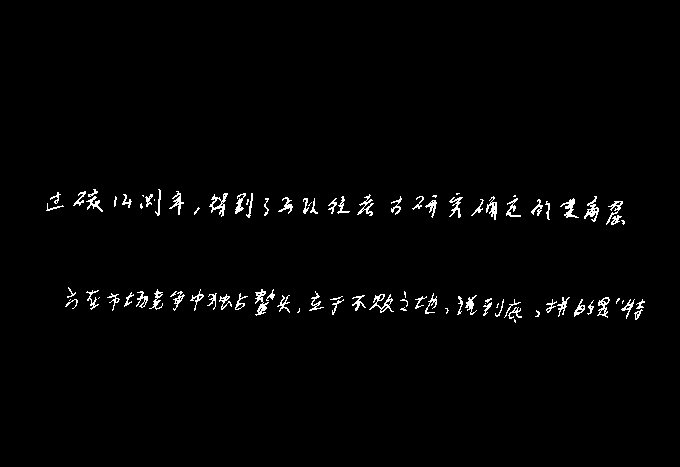 过碳14测年,得到了与以往考古研究确定的类角层
方在市场竞争中独占鳌头,立于不败之地、说到底、拼的是“特